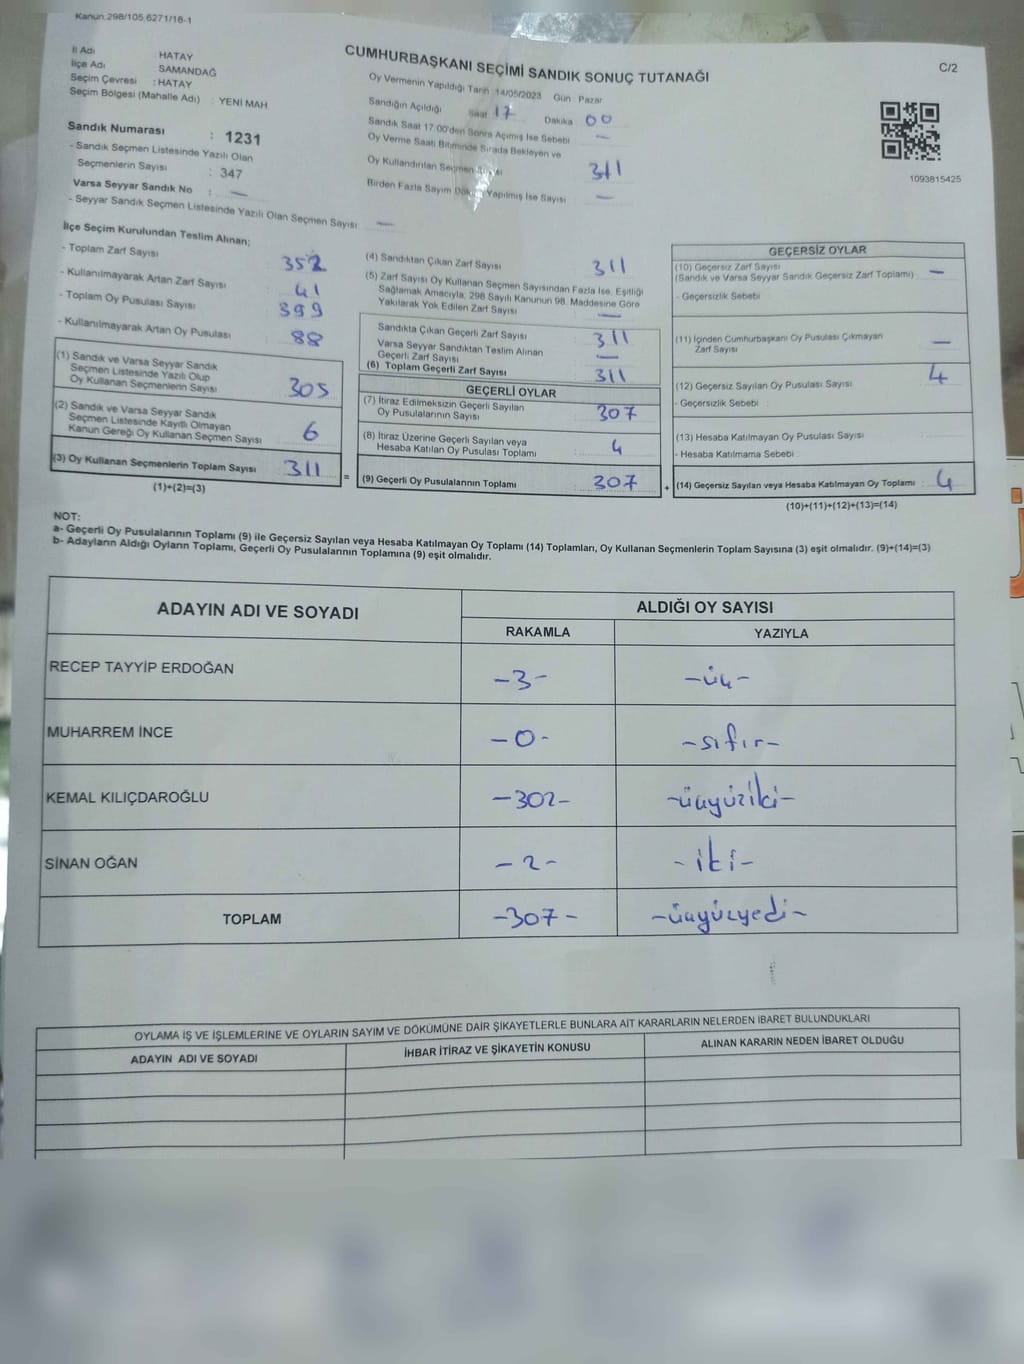 Kanun:298/105,6271/18-1
İl Adı HATAY
İlçe Adı SAMANDAĞ
Seçim Çevresi : HATAY
Seçim Bölgesi (Mahalle Adı) : YENİ MAH
Sandık Numarası : 1231
- Sandık Seçmen Listesinde Yazılı Olan
Seçmenlerin Sayısı : 347
Varsa Seyyar Sandık No : —
- Seyyar Sandık Seçmen Listesinde Yazılı Olan Seçmen Sayısı —
CUMHURBAŞKANI SEÇİMİ SANDIK SONUÇ TUTANAĞI
C/2
Oy Vermenin Yapıldığı Tarih :14/05/2023 Gün : Pazar
Sandığın Açıldığı Saat 17 Dakika 00
Sandık Saat 17.00'den Sonra Açılmış İse Sebebi —
Oy Verme Saati Bitiminde Sırada Bekleyen ve
Oy Kullandırılan Seçmen 311
Birden Fazla Sayım Yapılmış İse Sayısı —
1093815425
İlçe Seçim Kurulundan Teslim Alınan;
- Toplam Zarf Sayısı 352
- Kullanılmayarak Artan Zarf Sayısı 41
- Toplam Oy Pusulası Sayısı 399
- Kullanılmayarak Artan Oy Pusulası 88
(1) Sandık ve Varsa Seyyar Sandık
Seçmen Listesinde Yazılı Olup
Oy Kullanan Seçmenlerin Sayısı 305
(2) Sandık ve Varsa Seyyar Sandık
Seçmen Listesinde Kayıtlı Olmayan
Kanun Gereği Oy Kullanan Seçmen Sayısı 6
(3) Oy Kullanan Seçmenlerin Toplam Sayısı 311 =
(1)+(2)=(3)
(4) Sandıktan Çıkan Zarf Sayısı 311
(5) Zarf Sayısı Oy Kullanan Seçmen Sayısından Fazla İse, Eşitliği
Sağlamak Amacıyla, 298 Sayılı Kanunun 98. Maddesine Göre
Yakılarak Yok Edilen Zarf Sayısı —
Sandıkta Çıkan Geçerli Zarf Sayısı 311
Varsa Seyyar Sandıktan Teslim Alınan
Geçerli Zarf Sayısı —
(6) Toplam Geçerli Zarf Sayısı 311
GEÇERLİ OYLAR
(7) İtiraz Edilmeksizin Geçerli Sayılan
Oy Pusulalarının Sayısı 307
(8) İtiraz Üzerine Geçerli Sayılan veya
Hesaba Katılan Oy Pusulası Toplamı 4
(9) Geçerli Oy Pusulalarının Toplamı : 307 +
GEÇERSİZ OYLAR
(10) Geçersiz Zarf Sayısı
(Sandık ve Varsa Seyyar Sandık Geçersiz Zarf Toplamı) —
- Geçersizlik Sebebi
(11) İçinden Cumhurbaşkanı Oy Pusulası Çıkmayan
Zarf Sayısı —
(12) Geçersiz Sayılan Oy Pusulası Sayısı 4
- Geçersizlik Sebebi
(13) Hesaba Katılmayan Oy Pusulası Sayısı
- Hesaba Katılmama Sebebi
(14) Geçersiz Sayılan veya Hesaba Katılmayan Oy Toplamı : 4
(10)+(11)+(12)+(13)=(14)
NOT:
a- Geçerli Oy Pusulalarının Toplamı (9) ile Geçersiz Sayılan veya Hesaba Katılmayan Oy Toplamı (14) Toplamları, Oy Kullanan Seçmenlerin Toplam Sayısına (3) eşit olmalıdır. (9)+(14)=(3)
b- Adayların Aldığı Oyların Toplamı, Geçerli Oy Pusulalarının Toplamına (9) eşit olmalıdır.
ADAYIN ADI VE SOYADI ALDIĞI OY SAYISI
RAKAMLA YAZIYLA
RECEP TAYYİP ERDOĞAN -3- -üç-
MUHARREM İNCE -0- -sıfır-
KEMAL KILIÇDAROĞLU -302- -üçyüziki-
SİNAN OĞAN -2- -iki-
TOPLAM -307- -üçyüzyedi-
OYLAMA İŞ VE İŞLEMLERİNE VE OYLARIN SAYIM VE DÖKÜMÜNE DAİR ŞİKAYETLERLE BUNLARA AİT KARARLARIN NELERDEN İBARET BULUNDUKLARI
ADAYIN ADI VE SOYADI İHBAR İTİRAZ VE ŞİKAYETİN KONUSU ALINAN KARARIN NEDEN İBARET OLDUĞU